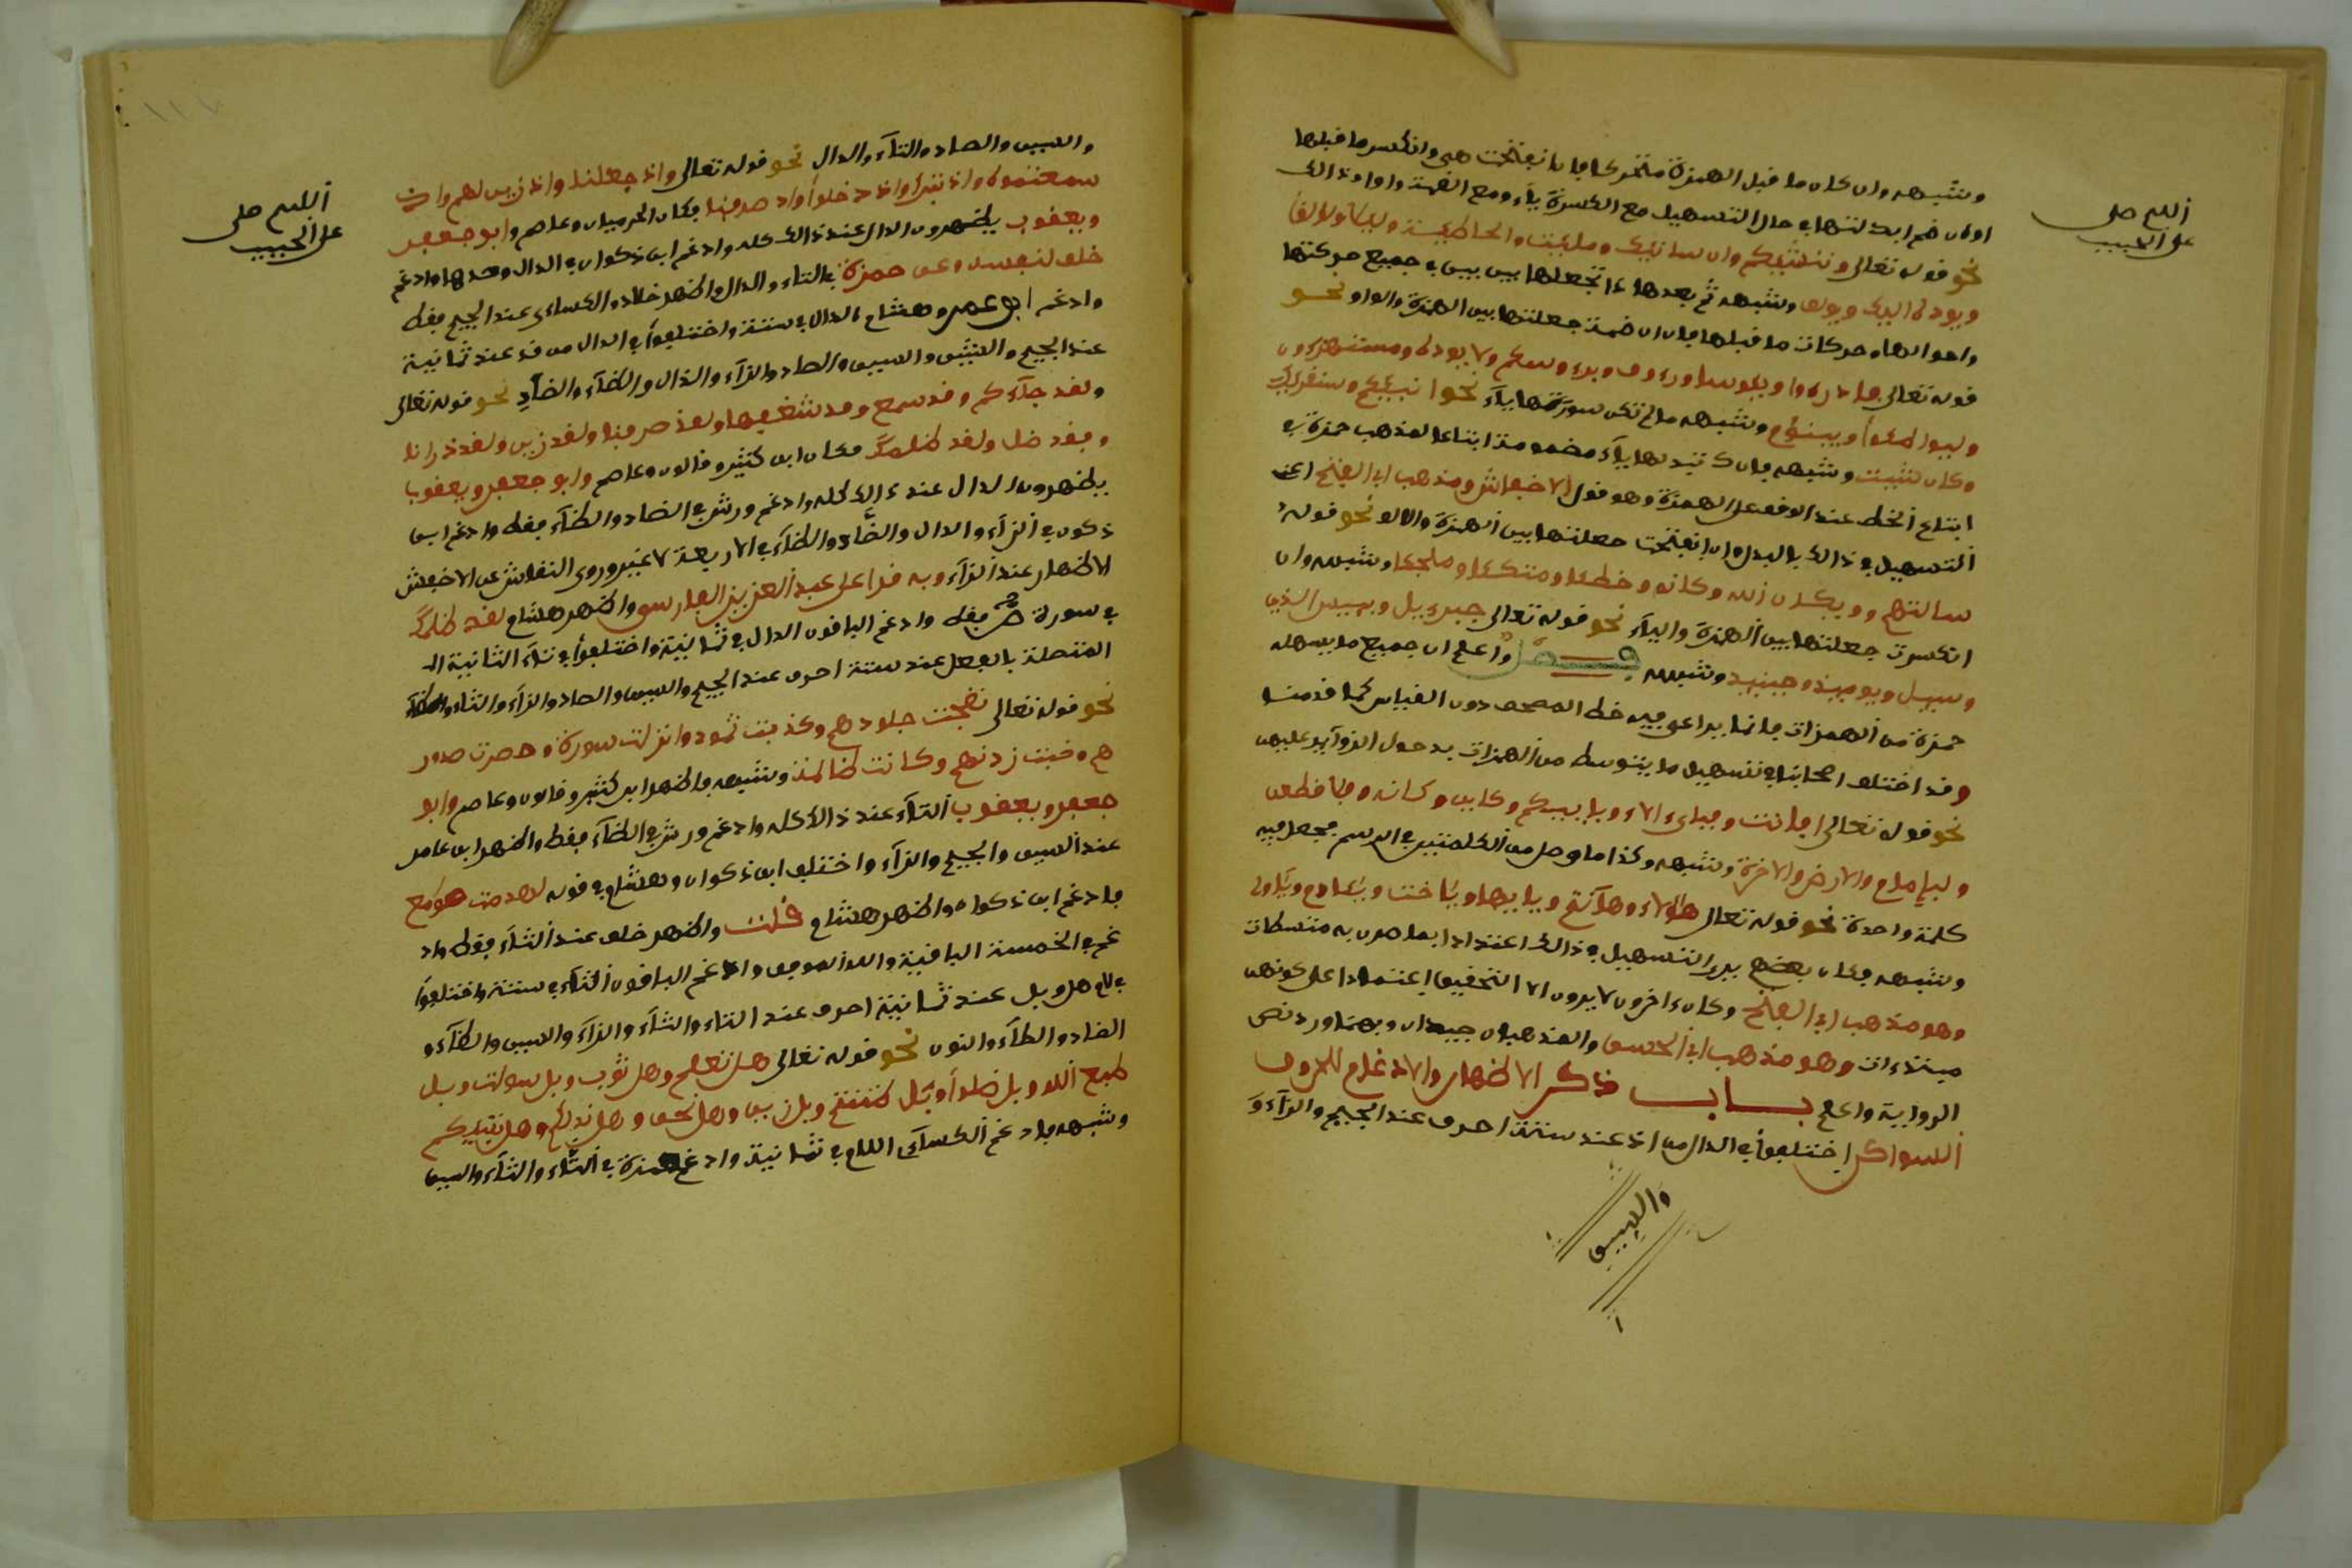 اللهم صل
على الحبيب
وشبهه وان كان ما قبل الهمزة متحركا فان انفتحت هي وانكسر ما قبلها
او كان ضم ابدلتها في حال التسهيل مع الكسرة ياء ومع الضمة واوا وذالك
نحو قوله تعالى وننشئكم وان شانئك وملئت والخاطئة وليلا ولولؤا
ويوده اليك ويولف وشبهه ثم بعدها ذا تجعلها بين بين في جميع حركتها
واحوالها وحركات ما قبلها فان انضمت جعلتها بين الهمزة والواو نحو
قوله تعالى فادرءوا ويئوسا ورءوف وبرءوسكم ولا يوده ومستهزءون
وليواطئوا ويبنؤم وشبهه ما لم تكن صورتها ياء نحو انبئكم وسنقرئك
وكان سيئه وشبهه فانك تبدلها ياء مضمومة اتباعا لمذهب حمزة في
اتباع الخط عند الوقف على الهمزة وهو قول الاخفش ومذهب ابي الفتح اعني
التسهيل في ذالك بالبدل وان انفتحت جعلتها بين الهمزة والالف نحو قوله
سالتهم وويكان الله وكانه وخطئا ومتكئا وملجئا وشبهه وان
انكسرت جعلتها بين الهمزة والياء نحو قوله تعالى جبرءيل ويئس الذين
وسيل ويوميذ وحينيذ وشبهه فصل واعلم ان جميع ما يسهله
حمزة من الهمزات فانما يراعى فيه خط المصحف دون القياس كما قدمنا
وقد اختلف اصحابنا في تسهيل ما يتوسط من الهمزات بدخول الزوآيد عليهن
نحو قوله تعالى افانت وفباي ءالاء وبابيكم وكاين وكانه وفلاقطعن
ولبامام والارض والاخرة وشبهه وكذا ما وصل من الكلمتين في الرسم فجعل فيه
كلمة واحدة نحو قوله تعالى هؤلاء وهآنتم ويايها وياخت ويئادم ويئاولى
وشبهه فكان بعضهم يرى التسهيل في ذالك اعتدادا بما صرن به متوسطات
وهو مذهب ابي الفتح وكان ءاخرون لا يرون الا التحقيق اعتمادا على كونهن
مبتدءات وهو مذهب ابي الحسن والمذهبان جيدان وبهما ورد نص
الرواية واعلم بــاب ذكر الاظهار والادغام للحروف
السواكن اختلفوا في الذال من اذ عند ستة احرف عند الجيم والزآء و
والسين
اللهم صل
على الحبيب
والسين والصاد والتآء والدال نحو قوله تعالى واذ جعلنا واذ زين لهم واذ
سمعتموه واذ تبرا واذ دخلوا واذ صرفنا فكان الحرميان وعاصم وابو جعفر
ويعقوب يظهرون الذال عند ذالك كله وادغم ابن ذكوان في الدال وحدها وادغم
خلف لنفسه وعن حمزة في التاء والدال واظهر خلاد والكسائى عند الجيم فقط
وادغم ابو عمرو وهشام الذال في ستة واختلفوا في الدال من قد عند ثمانية
عند الجيم والشين والسين والصاد والزآء والذال والظآء والضاد نحو قوله تعالى
ولقد جآءكم وقد سمع وقد شغفها ولقد صرفنا ولقد زين ولقد ذرانا
وفقد ضل ولقد ظلمك فكان ابن كثير وقالون وعاصم وابو جعفر ويعقوب
يظهرون الدال عند ذالك كله وادغم ورش في الضاد والظآء فقط وادغم ابن
ذكون في الزآء والذال والضاد والظآء في الاربعة لا غير وروى النقاش عن الاخفش
الاظهار عند الزآء وبه قرا على عبد العزيز الفارسي واظهر هشام لقد ظلمك
في سورة ص فقط وادغم الباقون الدال في ثمانية واختلفوا في تآء التانيث الـ
المتصلة بالفعل عند ستة احرف عند الجيم والسين والصاد والزآء والثاء والظآء
نحو قوله تعالى نضجت جلودهم وكذبت ثمود وانزلت سورة وحصرت صدور
هم وخبت زدنهم وكانت ظالمة وشبهه فاظهر ابن كثير وقالون وعاصم وابو
جعفر ويعقوب التآء عند ذالك كله وادغم ورش في الظآء فقط واظهر ابن عامر
عند السين والجيم والزآء واختلف ابن ذكوان وهشام في قوله لهدمت صومع
فادغم ابن ذكوان واظهر هشام قلت واظهر خلف عند الثآء فقط واد
غم في الخمسة الباقية والله الموفق وادغم الباقون التآء في ستة واختلفوا
في لام هل وبل عند ثمانية احرف عند التاء والثآء والزآء والسين والظآء و
الضاد والطآء والنون نحو قوله تعالى هل تعلم وهل ثوب وبل سولت وبل
طبع الله وبل ضلوا وبل ظننتم وبل زين وهل نحن وهل ندلكم وهل ننبيكم
وشبهه فادغم الكسآئى اللام في ثمانية وادغم حمزة في التآء والثآء والسين